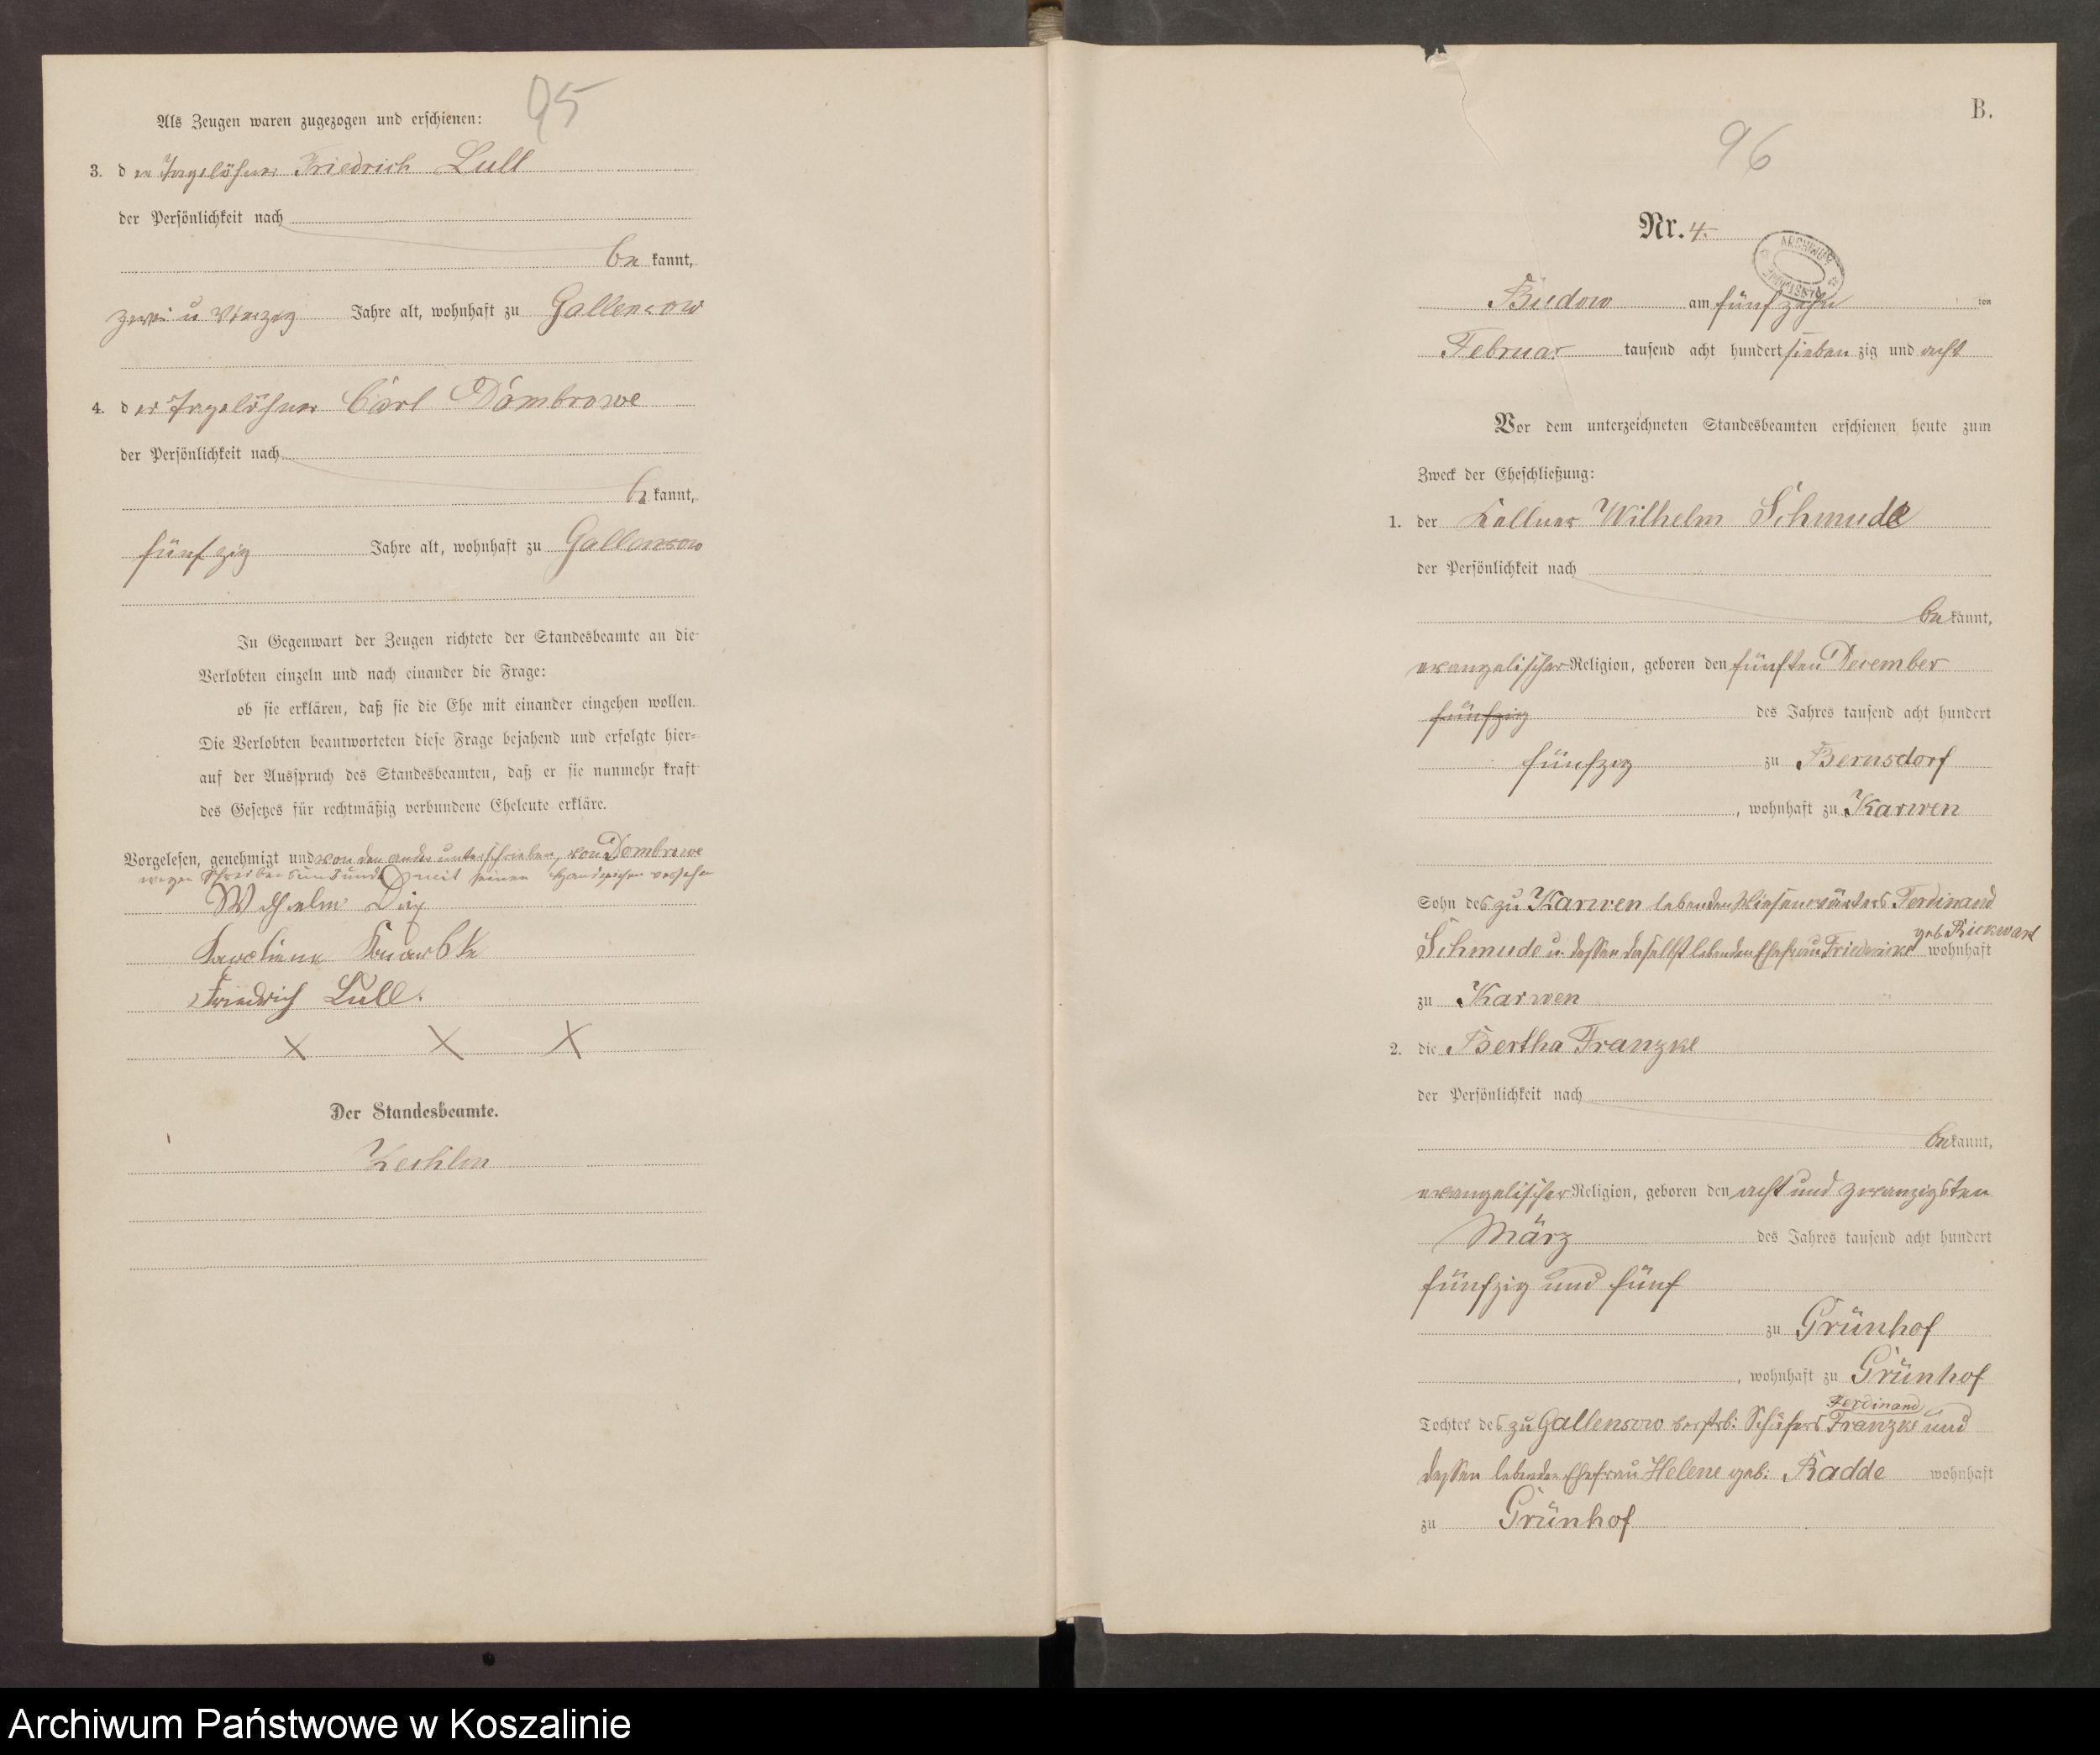 95
Als Zeugen waren zugezogen und erschienen:
3. der Tagelöhner Friedrich Lull
der Persönlichkeit nach
be kannt,
zwei u vierzig Jahre alt, wohnhaft zu Gallensow
4. der Tagelöhner Carl Dombrowe
der Persönlichkeit nach
be kannt,
fünfzig Jahre alt, wohnhaft zu Gallensow
In Gegenwart der Zeugen richtete der Standesbeamte an die
Verlobten einzeln und nach einander die Frage:
ob sie erklären, daß sie die Ehe mit einander eingehen wollen.
Die Verlobten beantworteten diese Frage bejahend und erfolgte hier-
auf der Ausspruch des Standesbeamten, daß er sie nunmehr kraft
des Gesetzes für rechtmäßig verbundene Eheleute erkläre.
Vorgelesen, genehmigt und von den unterschrieben, von Dombrowe
wegen Schreibensunkunde mit seinen Handzeichen versehen
Wilhelm
Karoline
Friedrich Lull.
X X X
Der Standesbeamte.
B.
96
Nr. 4.
ARCHIWUM
Budow am fünfzehn ten
Februar tausend acht hundert sieben zig und acht
Vor dem unterzeichneten Standesbeamten erschienen heute zum
Zweck der Eheschließung:
1. der Kellner Wilhelm Schmude
der Persönlichkeit nach
be kannt,
evangelischer Religion, geboren den fünften December
fünfzig des Jahres tausend acht hundert
fünfzig zu Bernsdorf
, wohnhaft zu Karwen
Sohn des zu Karwen lebenden Wiesenwärters Ferdinand
geb. Rickwart
Schmude u. dessen daselbst lebenden Ehefrau Friedericke wohnhaft
zu Karwen
2. die Bertha Franzke
der Persönlichkeit nach
be kannt,
evangelischer Religion, geboren den acht und zwanzigsten
März des Jahres tausend acht hundert
fünfzig und fünf
zu Grünhof
, wohnhaft zu Grünhof
Ferdinand
Tochter des zu Gallensow verstrb: Schäfers Franzke und
dessen lebenden Ehefrau Helene geb: Radde wohnhaft
zu Grünhof
Archiwum Państwowe w Koszalinie